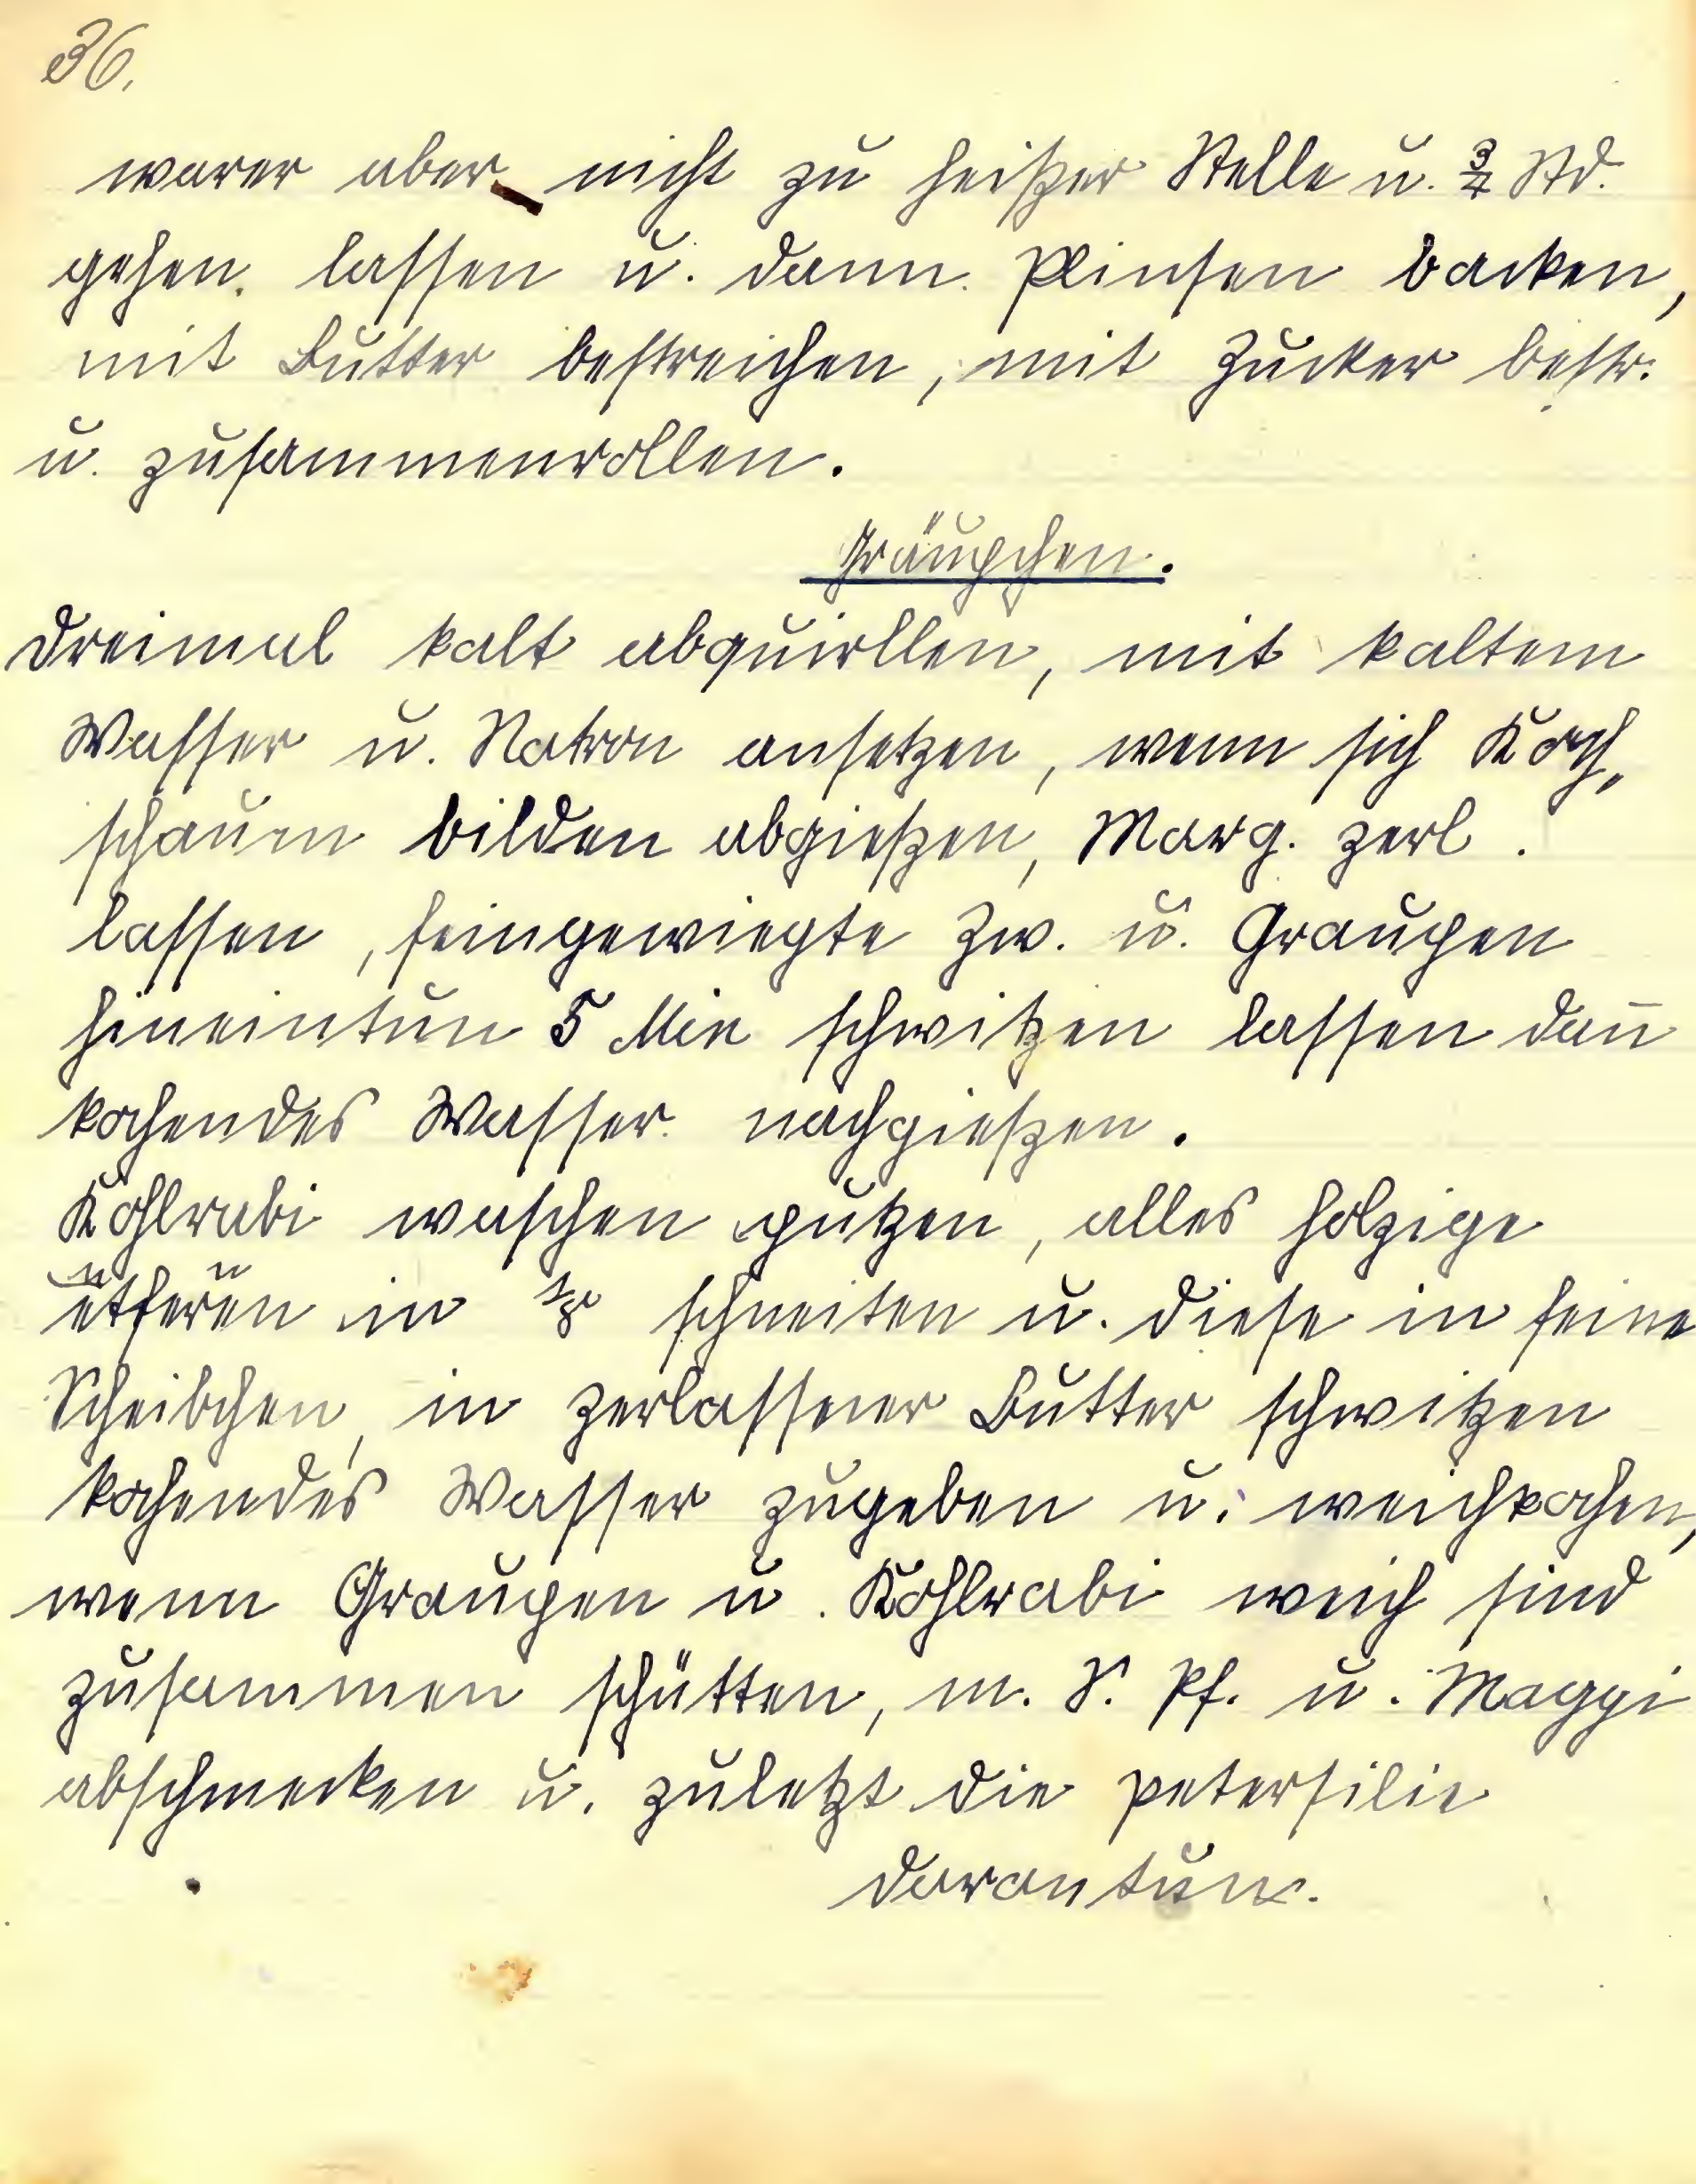 36.
warer aber nicht zu heißer Stelle u. 3/4 Std.
gehen lassen u. dann Plinsen backen,
mit Butter bestreichen, mit Zucker bestr.
u. zusammenrollen.
Gräupchen.
Dreimal kalt abquirllen, mit kaltem
Wasser u. Natron ansetzen, wenn sich Koch„
schaum bilden abgießen, Marg. zerl.
lassen, feingewiegte Zw. u. Graupen
hineintun 5 Min schwitzen lassen dan̄
kochendes Wasser nachgießen.
Kohlrabi waschen putzen, alles holzige
in schneiten u. diese in feine
Scheibchen, in zerlassener Butter schwitzen
kochendes Wasser zugeben u. weichkochen,
wenn Graupen u. Kohlrabi weich sind
zusammen schütten, m. S. Pf. u. Maggi
abschmecken u. zuletzt die Petersilie
darantun.